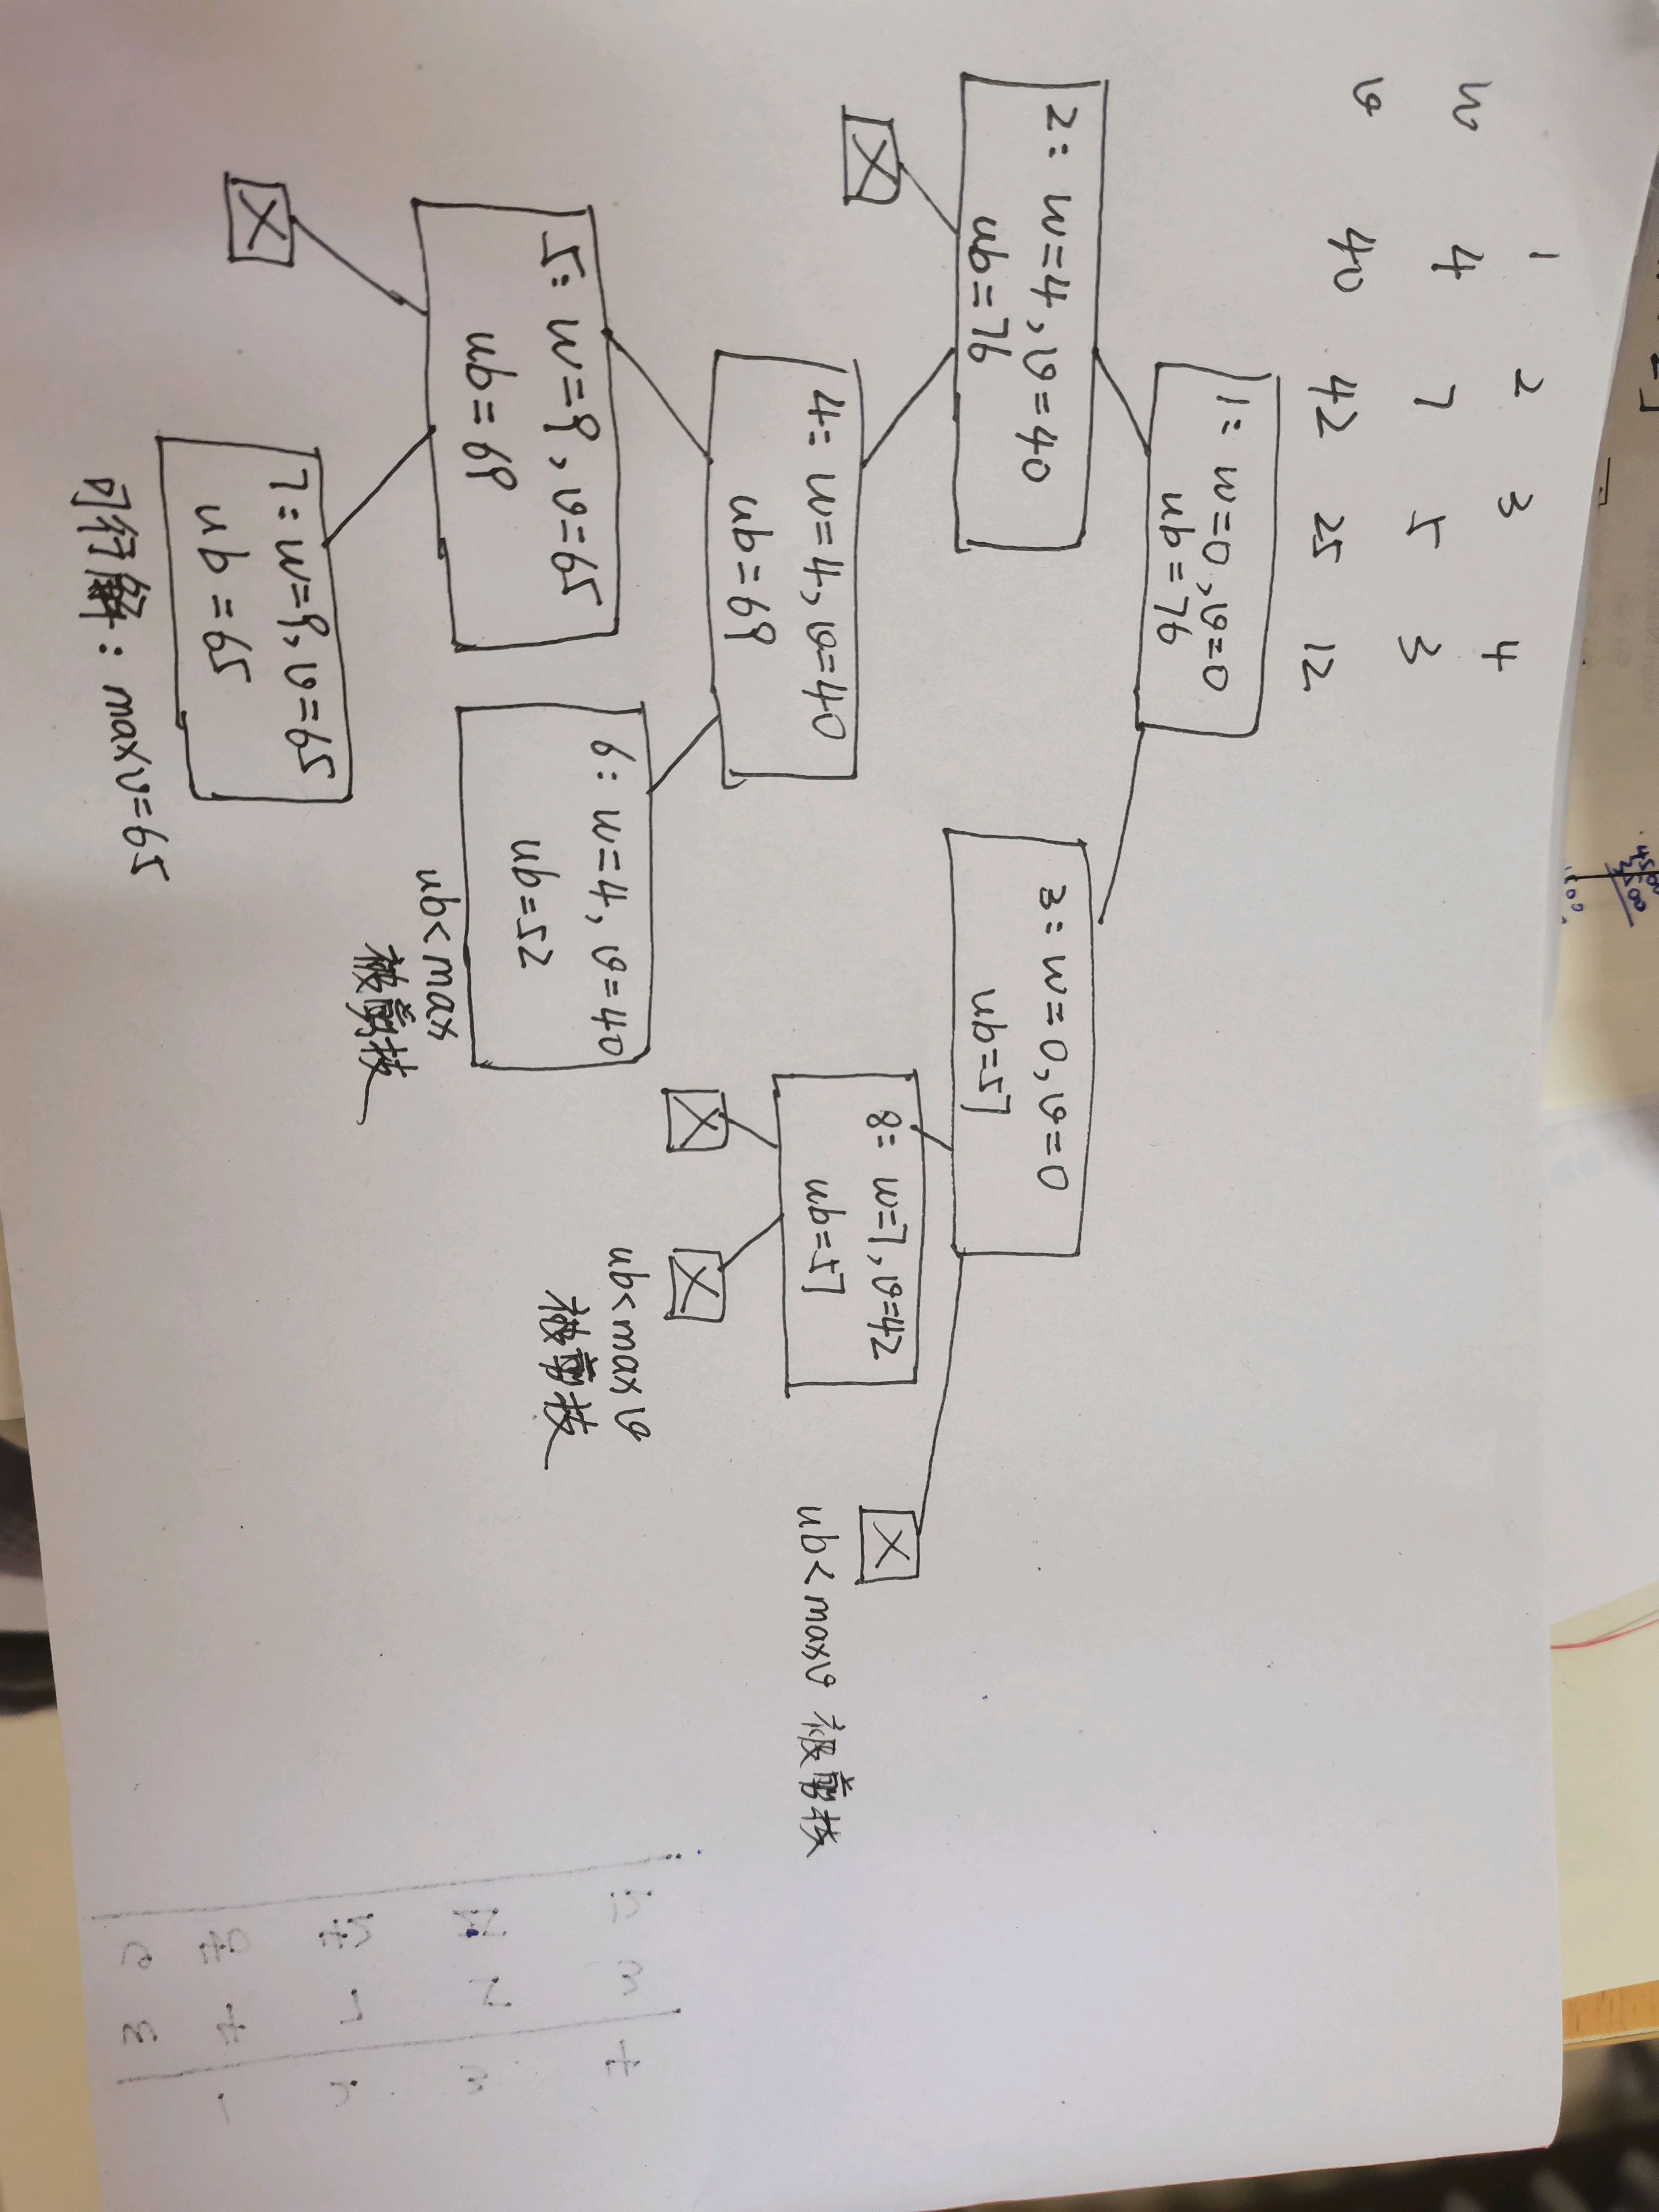 1 2 3 4
w 4 7 5 3
v 40 42 25 12
1: w=0, v=0
ub=76
2: w=4, v=40
ub=76
3: w=0, v=0
ub=57
4: w=4, v=40
ub=69
8: w=7, v=42
ub=57
ub<maxv 被剪枝
5: w=9, v=65
ub=69
6: w=4, v=40
ub=52
ub<max
被剪枝
ub<maxv
被剪枝
7: w=9, v=65
ub=65
可行解: maxv=65